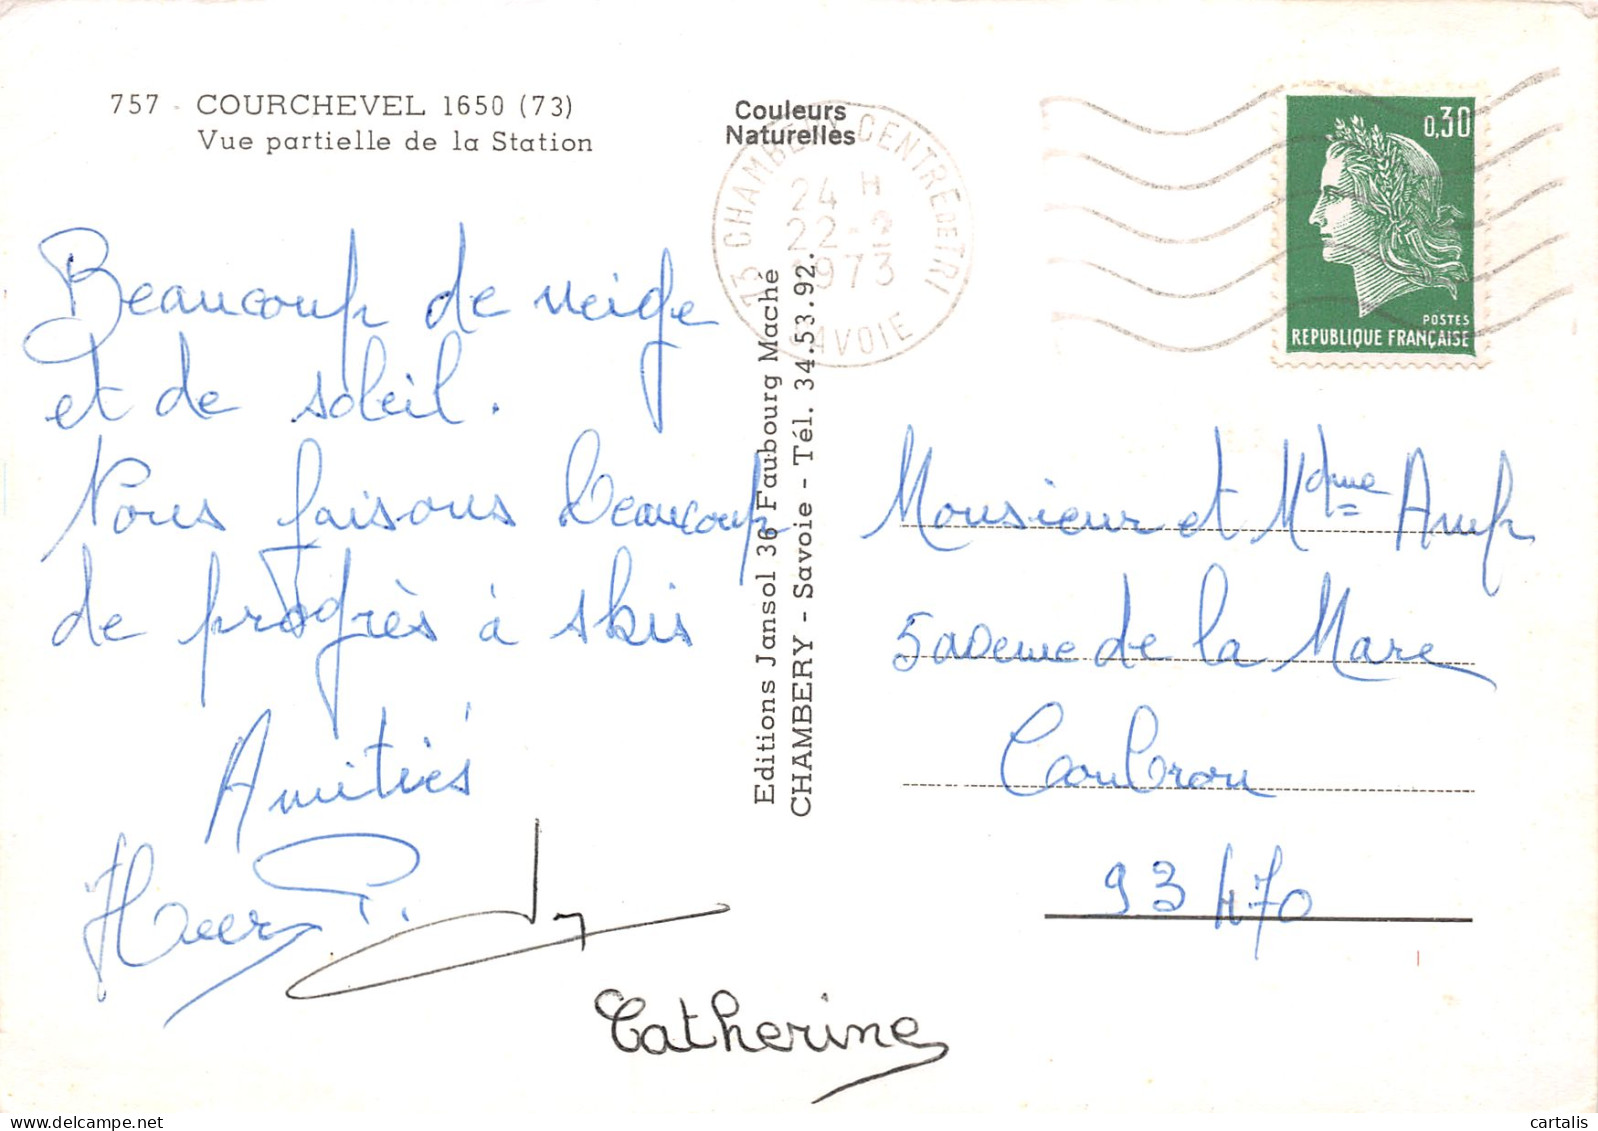 757 - COURCHEVEL 1650 (73)
Vue partielle de la Station
Couleurs
Naturelles
73 CHAMBERY CENTRE DE TRI
24 H
22-2
1973
SAVOIE
0,30
POSTES
REPUBLIQUE FRANÇAISE
Beaucoup de neige
et de soleil.
Nous faisons beaucoup
de progrès à skis
Amitiés
Catherine
Editions Jansol 36 Faubourg Maché
CHAMBERY - Savoie - Tél. 34.53.92.
Monsieur et Mdme
5 avenue de la Mare
Coubron
93470
cartalis
delcampe.net